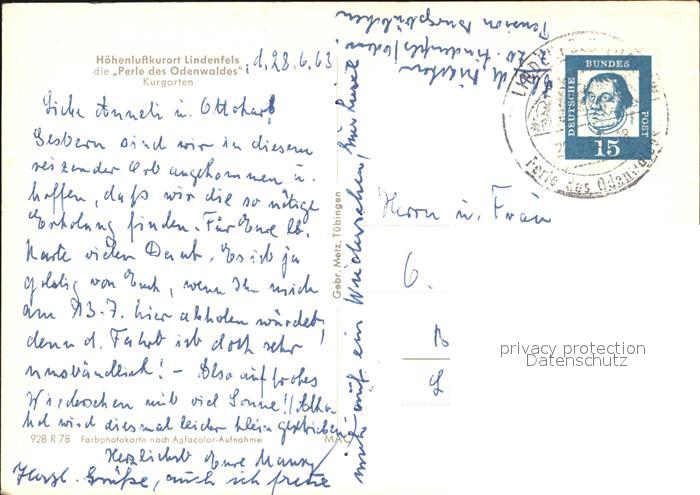 Höhenluftkurort Lindenfels
die „Perle des Odenwaldes"
Kurgarten
, d. 28.6.63
Liebe Anneli u. Ottokar!
Gestern sind wir in diesem
reizenden Ort angekommen u.
hoffen, daß wir die so nötige
Erholung finden. Für Eure lb.
Karte vielen Dank. Es ist ja
goldig von Euch, wenn Ihr mich
am 13.7. hier abholen würdet,
denn d. Fahrt ist doch sehr
umständlich! – Also auf frohes
Wiedersehen mit viel Sonne!
wird diesmal leider klein geschrieben
Herzlichst Eure
Herzl. Grüße, auch ich freue
mich auf ein Wiedersehen, Eure
928 R 78 Farbphotokarte nach Agfacolor-Aufnahme MAC
Gebr. Metz, Tübingen
Pension
Lindenfels/Odenw.
DEUTSCHE BUNDESPOST
15
Perle des Odenwaldes
Herrn u. Frau
6.
privacy protection
Datenschutz